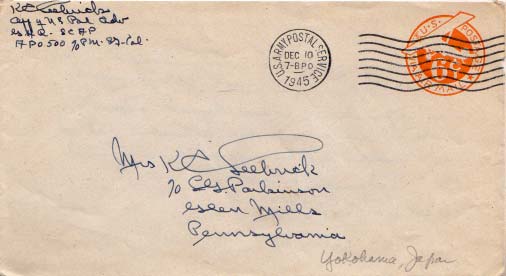 K C Seebrick
Off U S Pol Adv
G.H.Q. SCAP
APO 500 % P.M. S.F. Cal.
U.S. ARMY POSTAL SERVICE
DEC 10
7-8PM
1945
U.S. POSTAGE
6¢
AIR MAIL
Mrs K C Seebrick
% C.G. Parkinson
Glen Mills
Pennsylvania
Yokohama, Japan